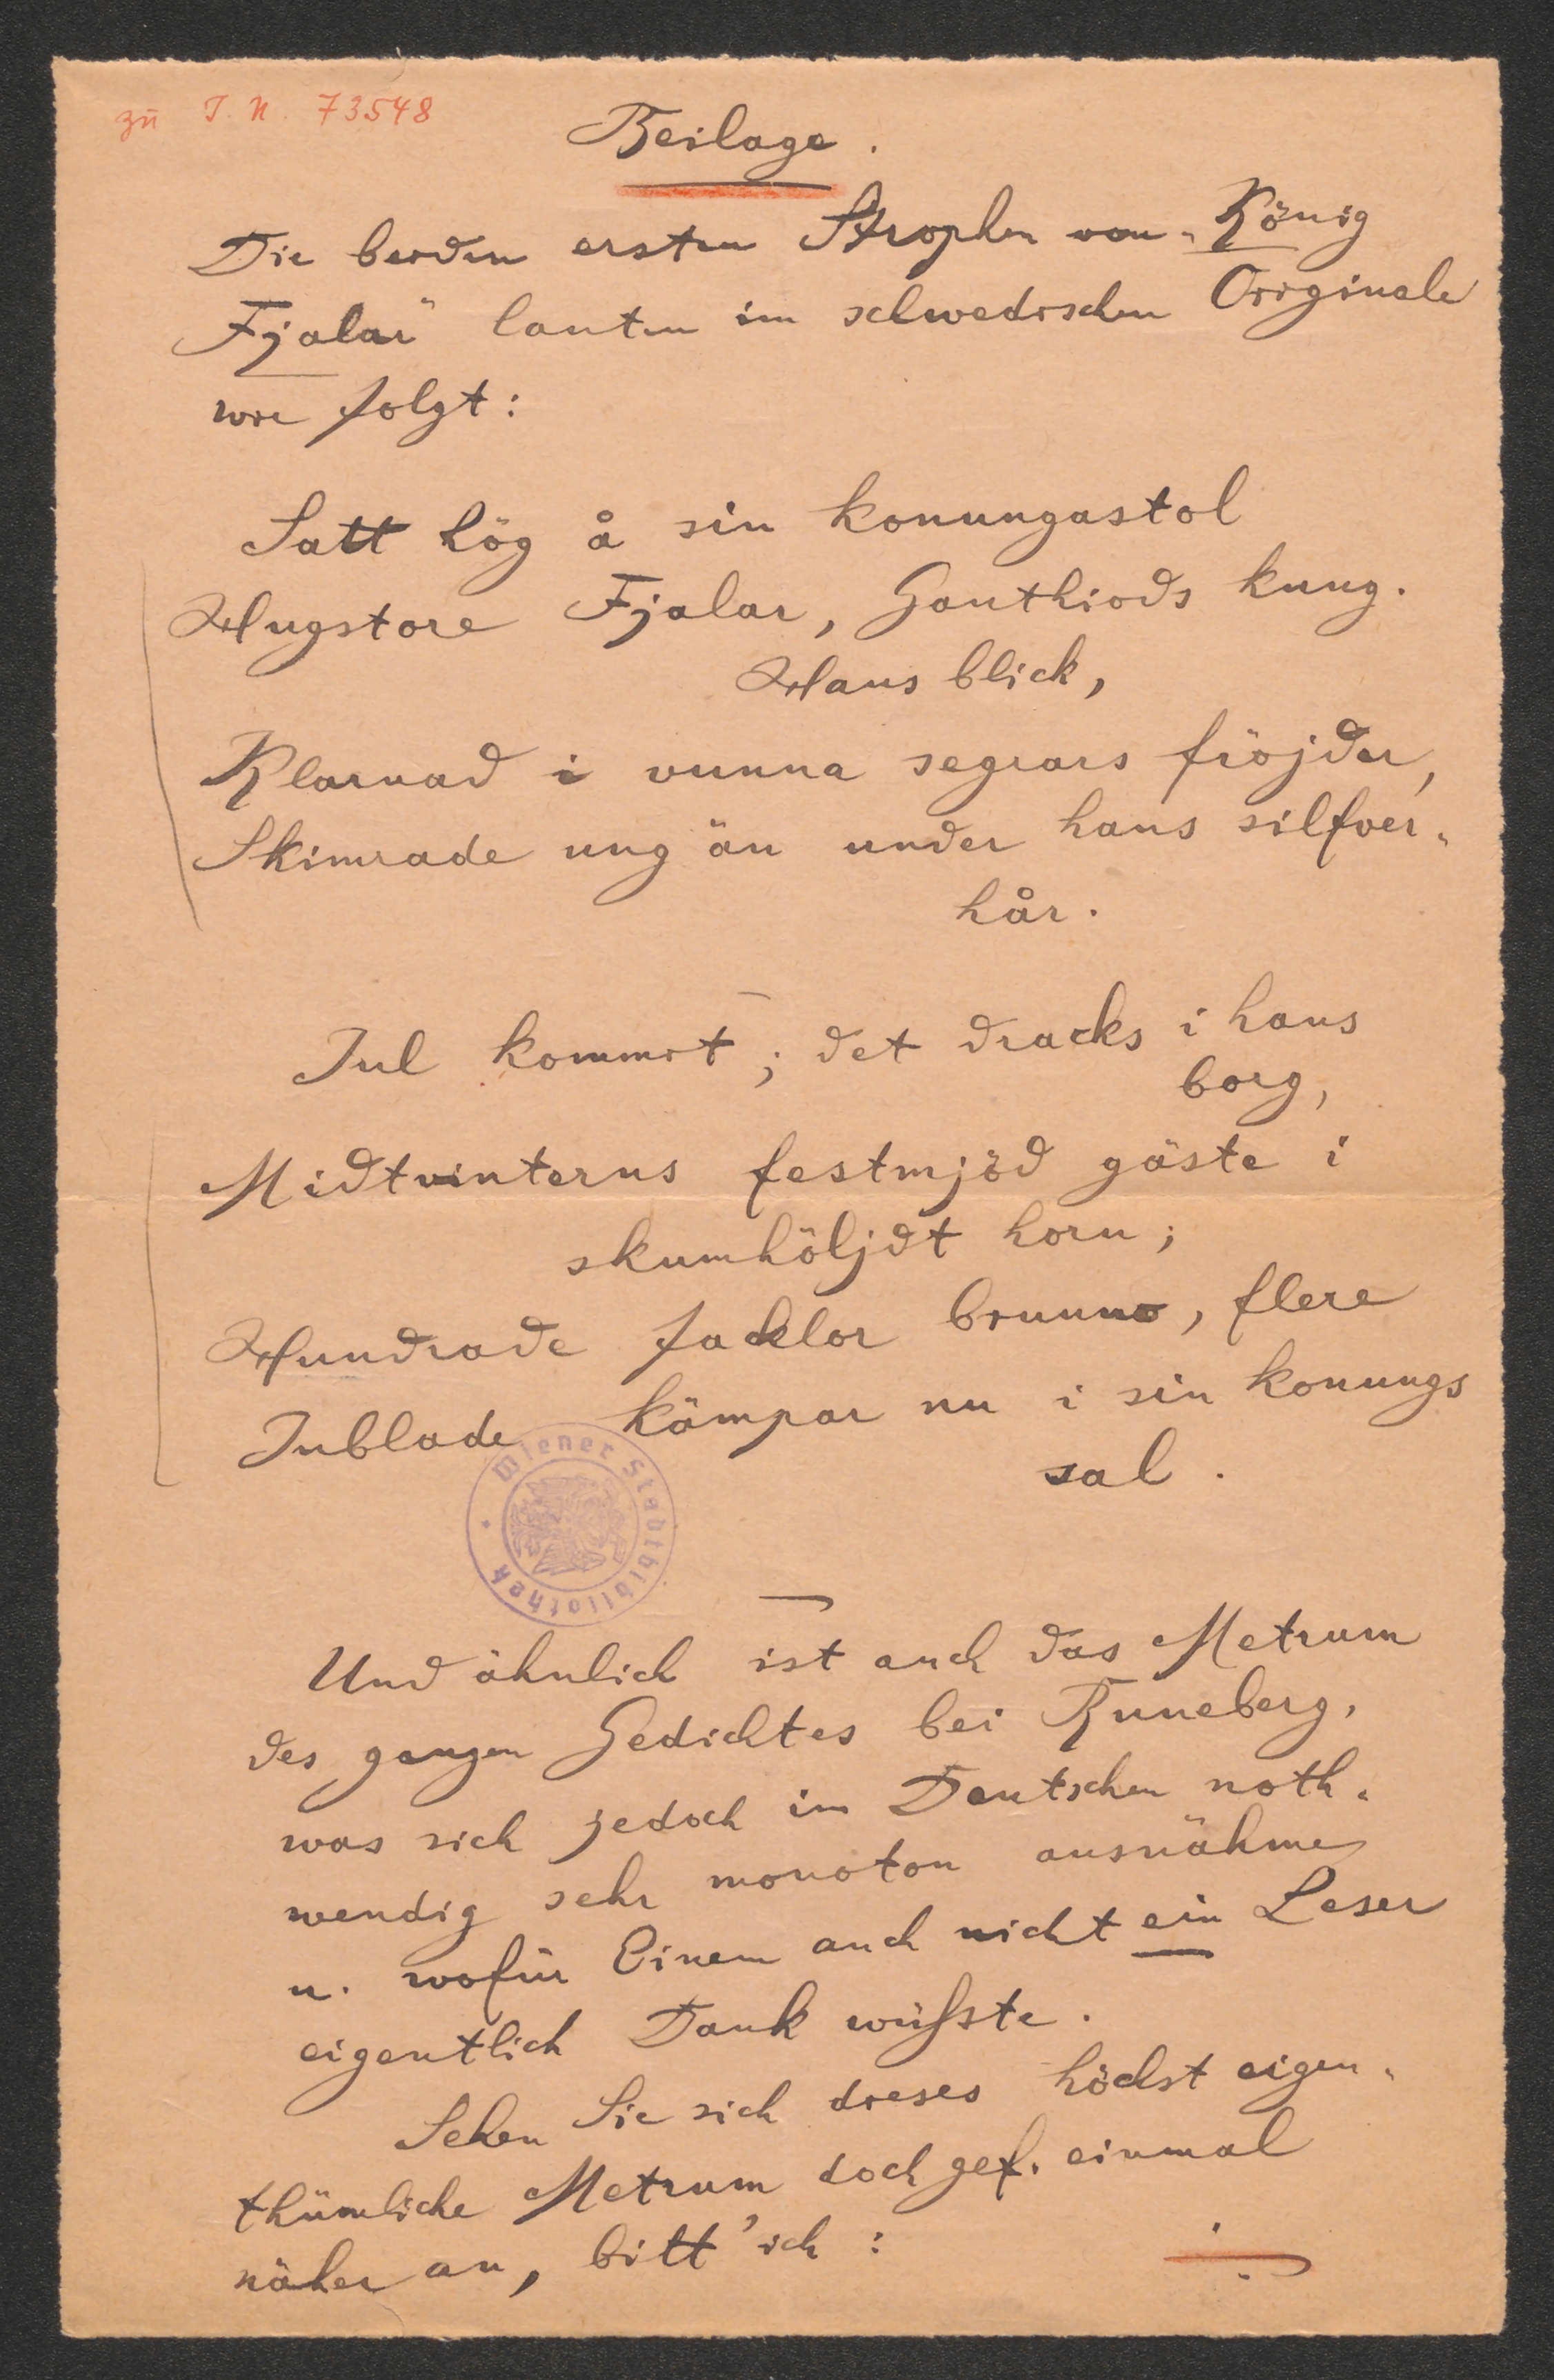 zu I. N. 73548
Beilage.
Die beiden ersten Strophen von „König
Fjalar" lauten im schwedischen Originale
wie folgt:
Satt hög å sin konungastol
Hugstore Fjalar, Gauthiods kung.
Hans blick,
Klarnad i vunna segrars fröjder,
Skimrade ung än under hans silfver„
hår.
Jul kommit; det dracks i hans
borg,
Midtvinterns festmjöd gäste i
skumhöljdt horn;
Hundrade facklor brunno, flere
Jublade kämpar nu i sin konungs
sal.
Wiener Stadtbibliothek
Und ähnlich ist auch das Metrum
des ganzen Gedichtes bei Runeberg,
was sich jedoch im Deutschen noth„
wendig sehr monoton ausnähme
u. wofür Einem auch nicht ein Leser
eigentlich Dank wüßste.
Sehen Sie sich dieses höchst eigen„
thümliche Metrum doch gef. einmal
näher an, bitt' ich: